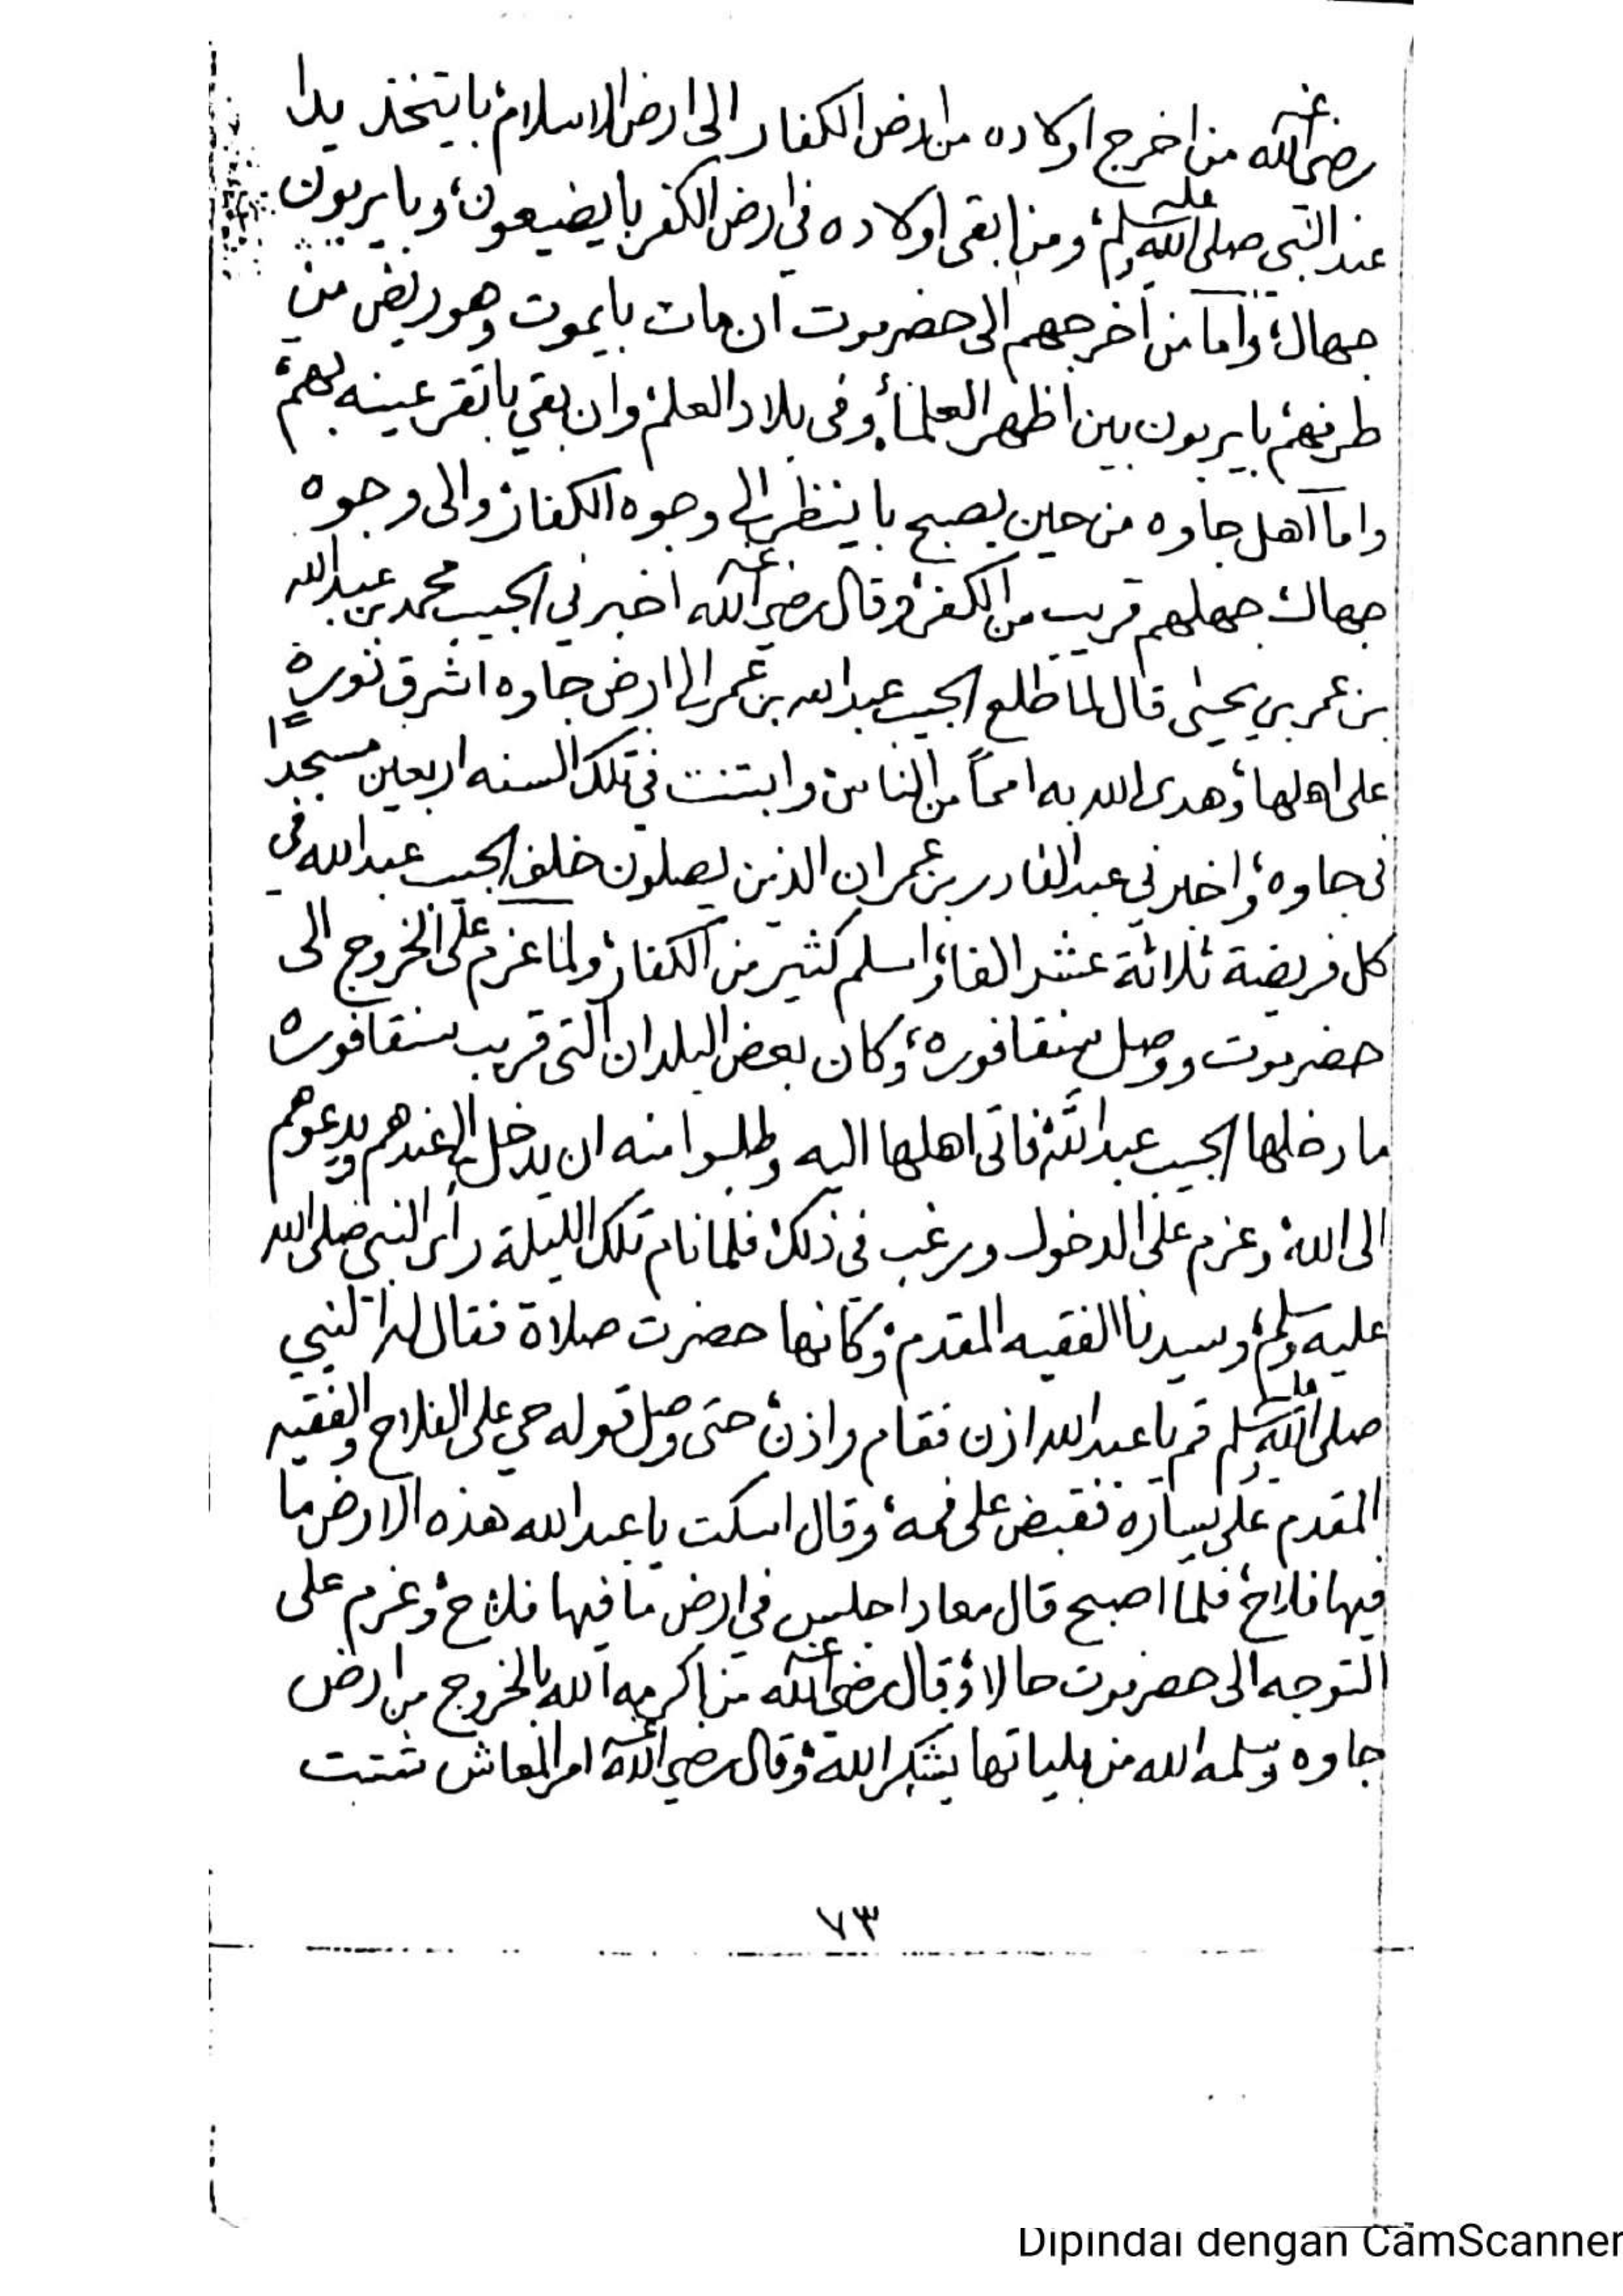 رضي الله عنه من اخرج اولاده من ارض الكفار الى ارض الاسلام، با يتخذ يدا
عند النبي صلى الله عليه وسلم، ومن ابقى اولاده في ارض الكفر با يضيعون، وبا يربون
جهال، واما من اخرجهم الى حضرموت ان مات با يموت وهو ريض من
طرفهم، با يربون بين اظهر العلماء، وفي بلاد العلم، وان بقي با تقر عينه بهم،
واما اهل جاوه من حين يصبح با ينظر الى وجوه الكفار، والى وجوه
جهال، جهلهم قريب من الكفر، وقال رضي الله عنه اخبرني الحبيب محمد بن عبدالله
بن عمر بن يحيى قال لما طلع الحبيب عبدالله بن عمر الى ارض جاوه اشرق نوره
على اهلها، وهدى الله به امماً من الناس، وابتنت في تلك السنه اربعين مسجداً
في جاوه، واخبرني عبدالقادر بن عمر ان الذين يصلون خلف الحبيب عبدالله في
كل فريضة ثلاثة عشر الفا، واسلم كثير من الكفار، ولما عزم على الخروج الى
حضرموت ووصل سنقافوره، وكان بعض البلدان التي قريب سنقافوره
ما دخلها الحبيب عبدالله، فاتى اهلها اليه وطلبوا منه ان يدخل الى عندهم ويدعوهم
الى الله، وعزم على الدخول ورغب في ذلك، فلما نام تلك الليلة رأى النبي صلى الله
عليه وسلم، وسيدنا الفقيه المقدم، وكأنها حضرت صلاة فقال له النبي
صلى الله عليه وسلم قم يا عبدالله اذن فقام واذن، حتى وصل قوله حي على الفلاح والفقيه
المقدم على يساره فقبض على فمه، وقال اسكت يا عبدالله هذه الارض ما
فيها فلاح، فلما اصبح قال معاد اجلس في ارض ما فيها فلاح، وعزم على
التوجه الى حضرموت حالا، وقال رضي الله عنه من اكرمه الله بالخروج من ارض
جاوه وسلمه الله من بلياتها يشكر الله، وقال رضي الله عنه امر المعاش شتت
٧٣
Dipindai dengan CamScanner